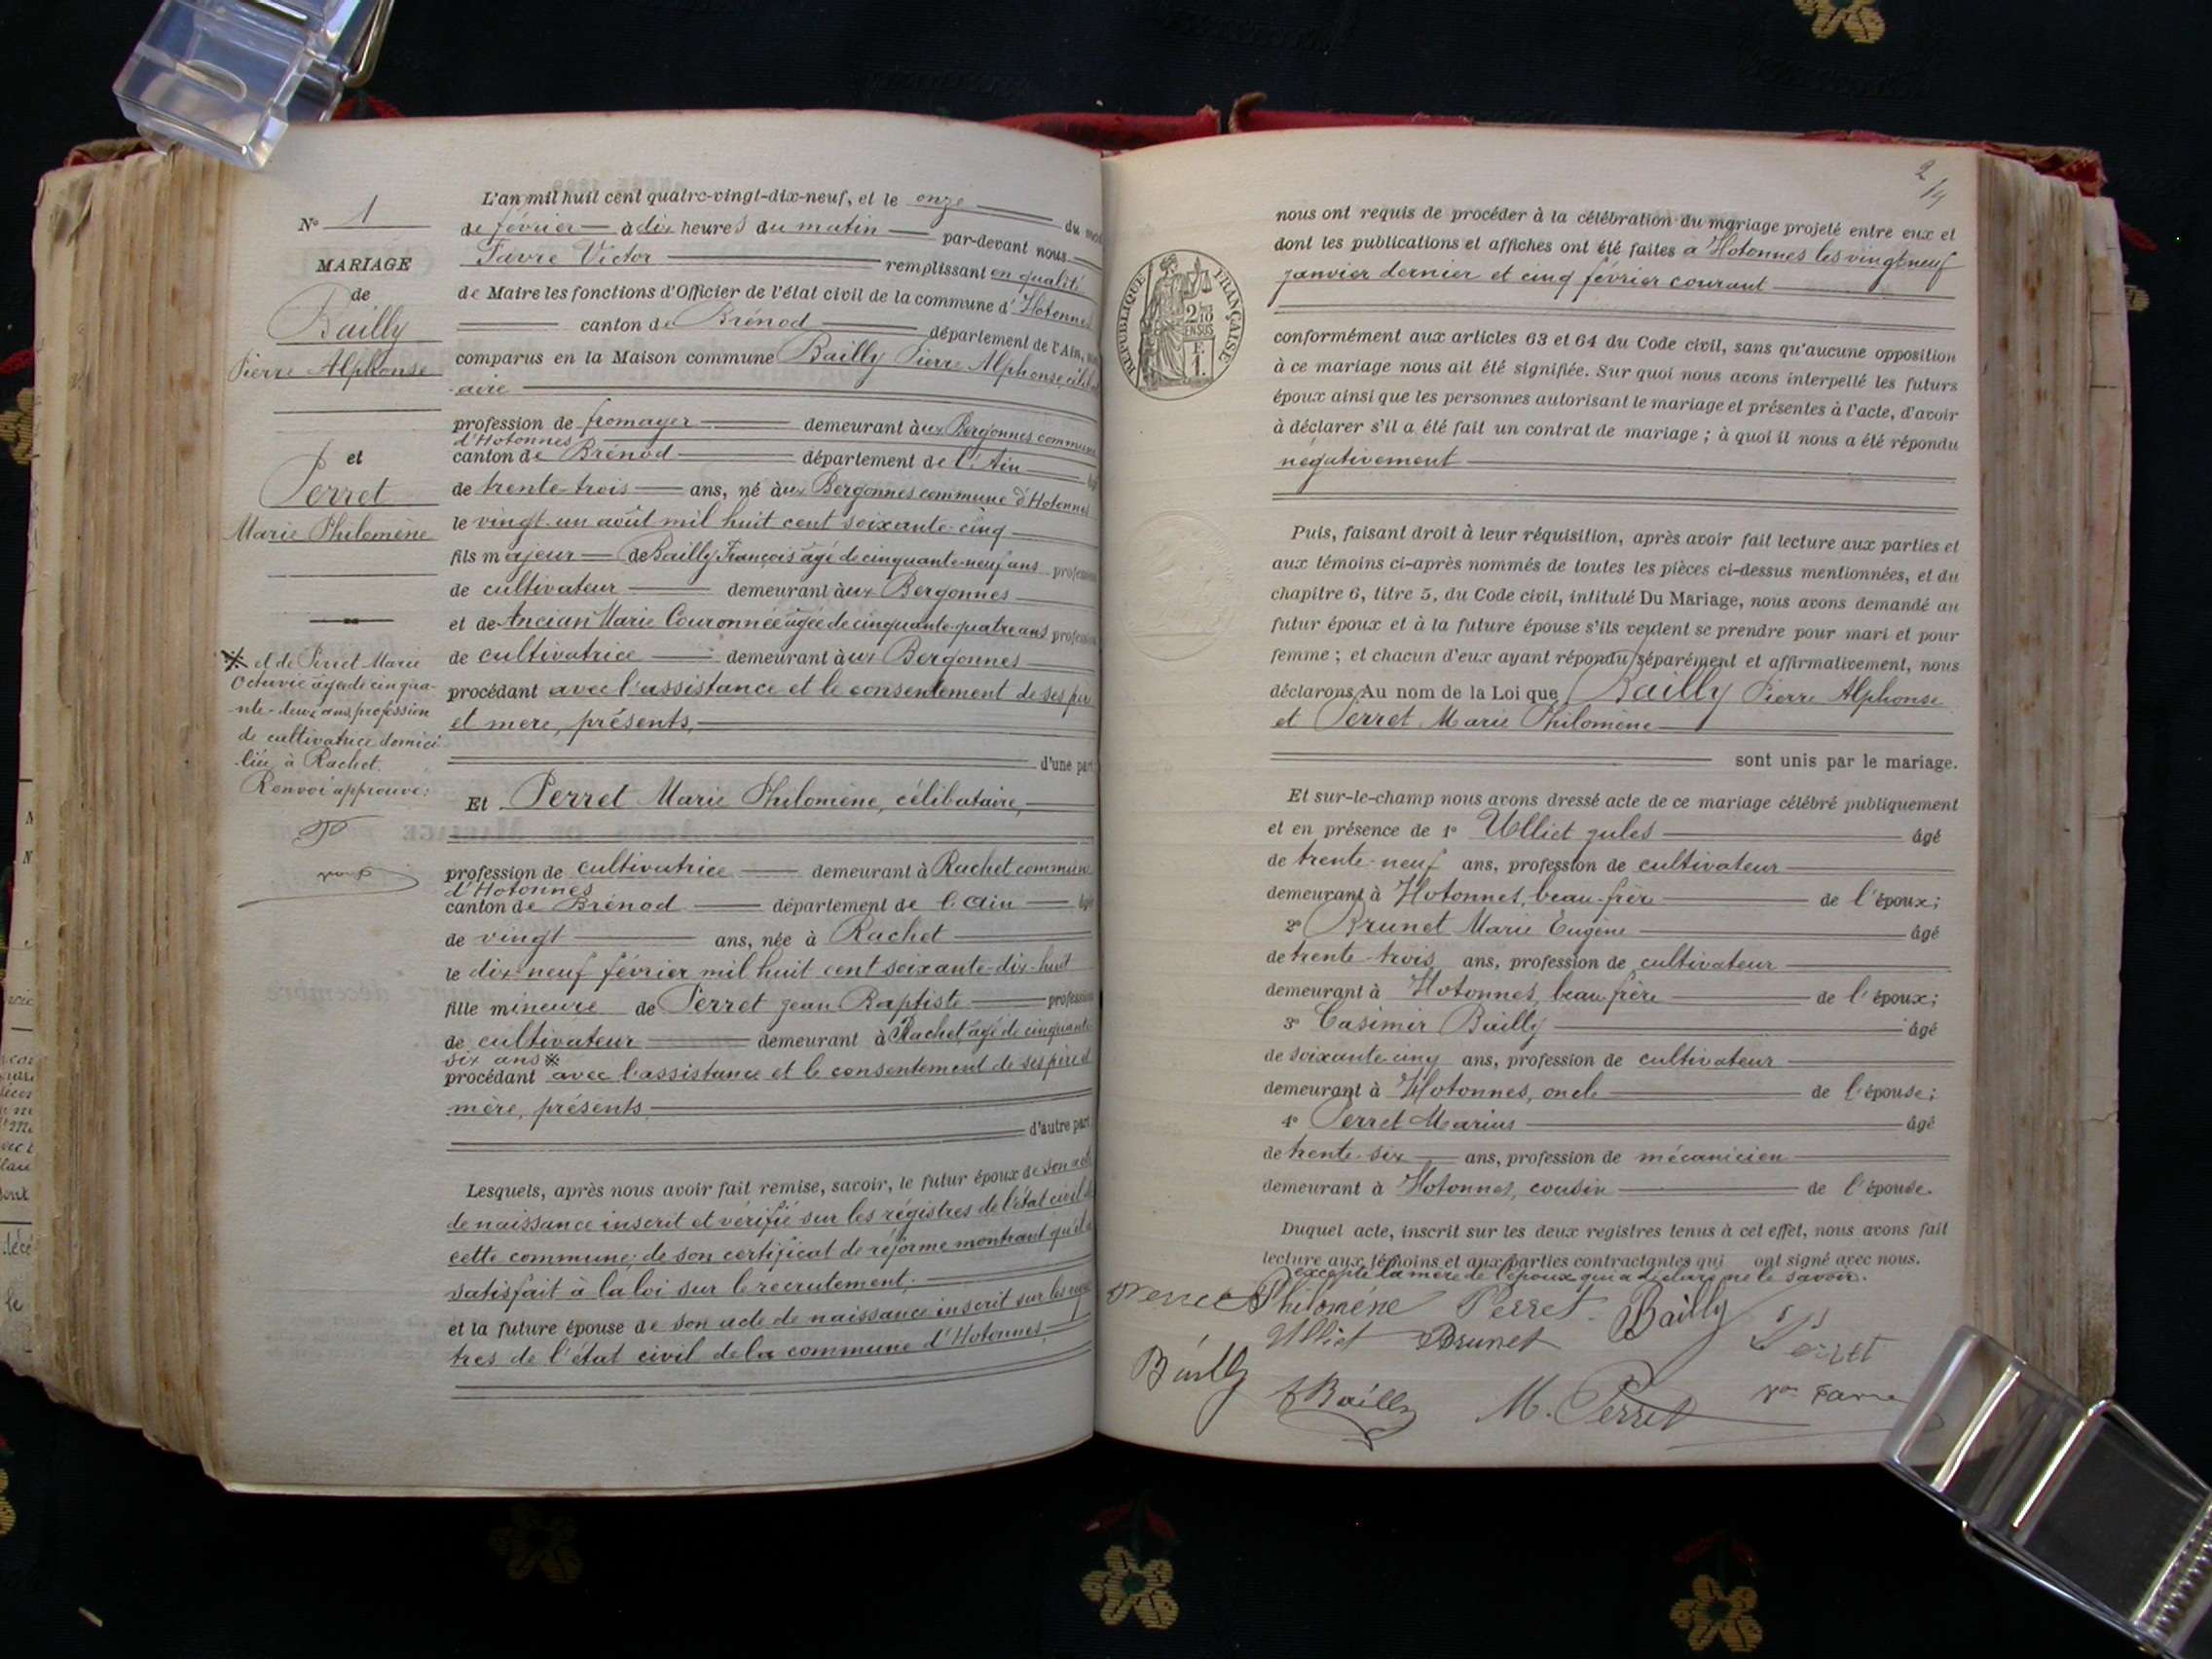 N° 1
MARIAGE
de
Bailly
Pierre Alphonse
et
Perret
Marie Philomène
※ et de Perret Marie
Octavie âgée de cinqua-
nte-deux ans, profession
de cultivatrice domici
liée à Rachet.
Renvoi approuvé:
L'an mil huit cent quatre-vingt-dix-neuf, et le onze du mois
de février à dix heures du matin par-devant nous
Favre Victor remplissant en qualité
de Maire les fonctions d'Officier de l'état civil de la commune d'Hotonnes
canton de Brénod département de l'Ain,
comparus en la Maison commune Bailly Pierre Alphonse célibat
aire
profession de fromager demeurant aux Bergonnes commune
d'Hotonnes
canton de Brénod département de l'Ain
de trente-trois ans, né aux Bergonnes commune d'Hotonnes
le vingt-un août mil huit cent soixante-cinq
fils majeur de Bailly François âgé de cinquante-neuf ans profession
de cultivateur demeurant aux Bergonnes
et de Ancian Marie Couronnée âgée de cinquante-quatre ans profession
de cultivatrice demeurant aux Bergonnes
procédant avec l'assistance et le consentement de ses père
et mère, présents,
d'une part
Et Perret Marie Philomène, célibataire,
profession de cultivatrice demeurant à Rachet commune
d'Hotonnes
canton de Brénod département de l'Ain âgée
de vingt ans, née à Rachet
le dix-neuf février mil huit cent soixante-dix-huit
fille mineure de Perret Jean Baptiste profession
de cultivateur demeurant à Rachet, âgé de cinquante
six ans ※
procédant avec l'assistance et le consentement de ses père et
mère, présents
d'autre part
Lesquels, après nous avoir fait remise, savoir, le futur époux de son acte
de naissance inscrit et vérifié sur les régistres de l'état civil de
cette commune; de son certificat de réforme montrant qu'il a
satisfait à la loi sur le recrutement;
et la future épouse de son acte de naissance inscrit sur les regis
tres de l'état civil de la commune d'Hotonnes,
2
RÉPUBLIQUE FRANÇAISE
nous ont requis de procéder à la célébration du mariage projeté entre eux et
dont les publications et affiches ont été faites à Hotonnes les vingt neuf
janvier dernier et cinq février courant
conformément aux articles 63 et 64 du Code civil, sans qu'aucune opposition
à ce mariage nous ait été signifiée. Sur quoi nous avons interpellé les futurs
époux ainsi que les personnes autorisant le mariage et présentes à l'acte, d'avoir
à déclarer s'il a été fait un contrat de mariage ; à quoi il nous a été répondu
négativement
Puis, faisant droit à leur réquisition, après avoir fait lecture aux parties et
aux témoins ci-après nommés de toutes les pièces ci-dessus mentionnées, et du
chapitre 6, titre 5, du Code civil, intitulé Du Mariage, nous avons demandé au
futur époux et à la future épouse s'ils veulent se prendre pour mari et pour
femme ; et chacun d'eux ayant répondu séparément et affirmativement, nous
déclarons Au nom de la Loi que Bailly Pierre Alphonse
et Perret Marie Philomène
sont unis par le mariage.
Et sur-le-champ nous avons dressé acte de ce mariage célébré publiquement
et en présence de 1° Ulliet Jules âgé
de trente-neuf ans, profession de cultivateur
demeurant à Hotonnes, beau-frère de l'époux;
2° Brunet Marie Eugène âgé
de trente-trois ans, profession de cultivateur
demeurant à Hotonnes, beau frère de l'époux;
3° Casimir Bailly âgé
de soixante cinq ans, profession de cultivateur
demeurant à Hotonnes, oncle de l'épouse;
4° Perret Marius âgé
de trente-six ans, profession de mécanicien
demeurant à Hotonnes, cousin de l'épouse.
Duquel acte, inscrit sur les deux registres tenus à cet effet, nous avons fait
lecture aux témoins et aux parties contractantes qui ont signé avec nous.
excepté la mère de l'époux qui a déclaré ne le savoir.
Philomène Perret Bailly
Ulliet Brunet Perret
Bailly
Bailly M. Perret Favre